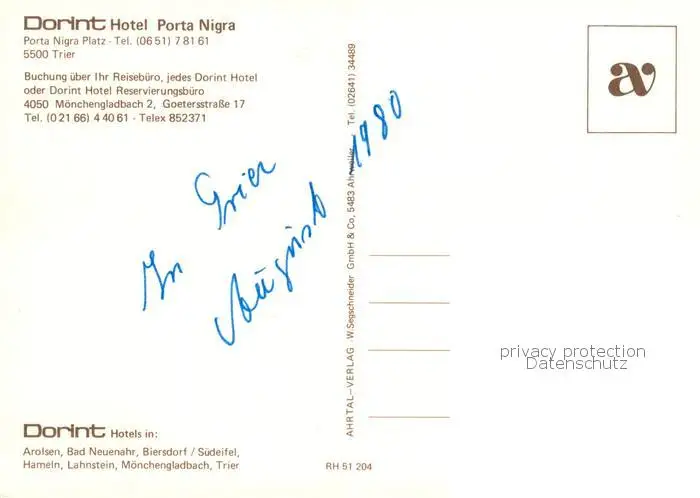 Dorint Hotel Porta Nigra
Porta Nigra Platz · Tel. (06 51) 7 81 61
5500 Trier
Buchung über Ihr Reisebüro, jedes Dorint Hotel
oder Dorint Hotel Reservierungsbüro
4050 Mönchengladbach 2, Goetersstraße 17
Tel. (0 21 66) 4 40 61 · Telex 852371
av
In Trier
August 1980
AHRTAL–VERLAG W. Segschneider GmbH & Co, 5483 Ahrweiler, Tel. (02641) 34489
privacy protection
Datenschutz
Dorint Hotels in:
Arolsen, Bad Neuenahr, Biersdorf / Südeifel,
Hameln, Lahnstein, Mönchengladbach, Trier
RH 51 204